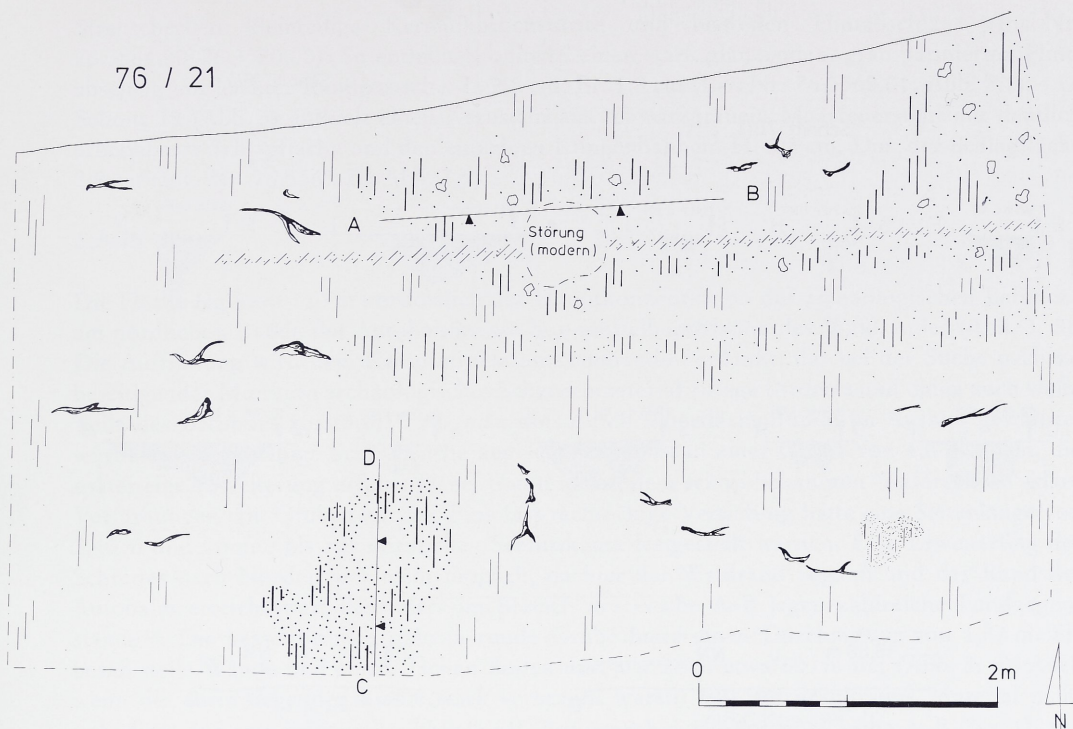 76 / 21
A
B
Störung
(modern)
D
C
0
2m
N